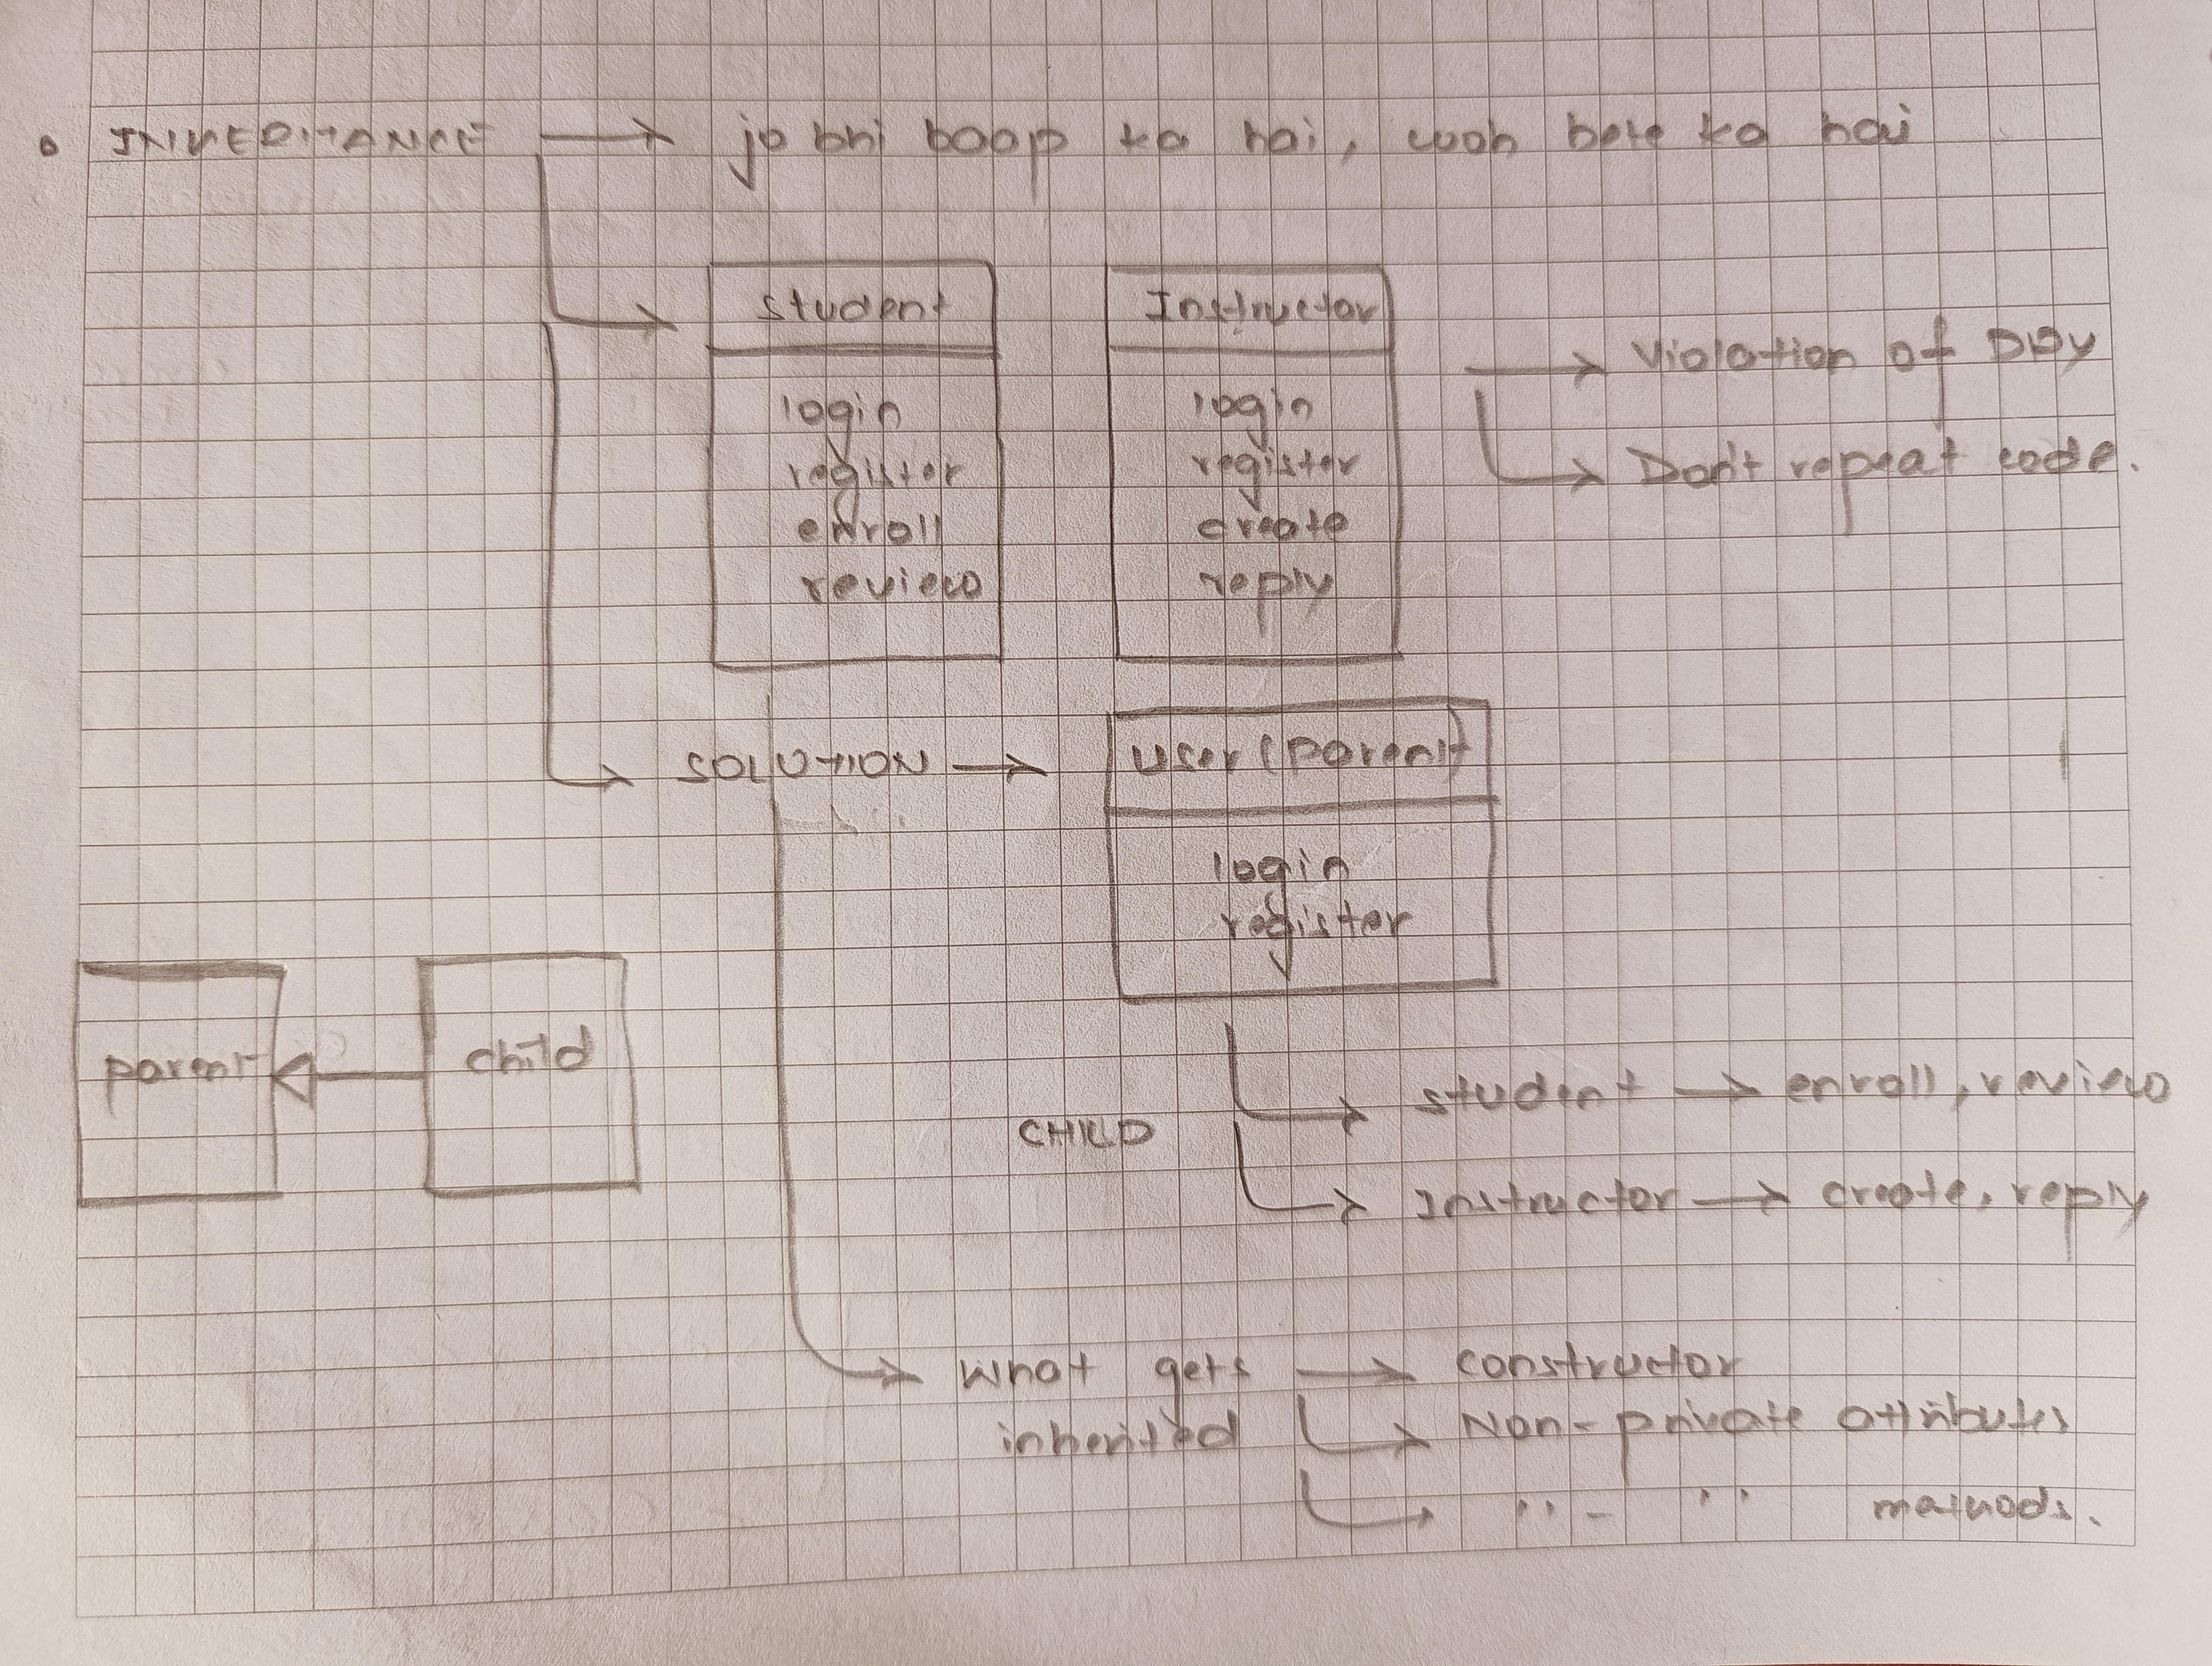 INHERITANCE → jo bhi baap ka hai, woh bete ka hai
Student
login
register
enroll
review
Instructor
login
register
create
reply
→ Violation of DRY
→ Don't repeat code.
SOLUTION →
User (Parent)
login
register
parent
child
CHILD
→ student → enroll, review
→ Instructor → create, reply
→ What gets inherited
→ constructor
→ Non-private attributes
→ '' - '' methods.